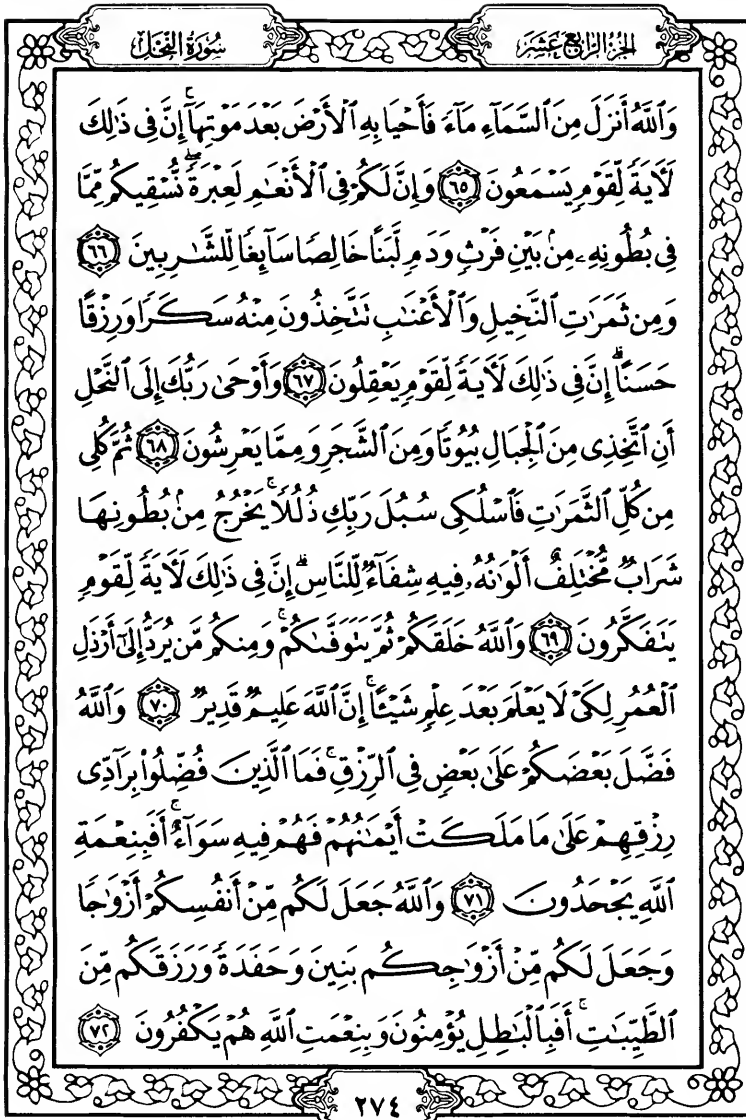 الجزء الرابع عشر
سورة النحل
وَٱللَّهُ أَنزَلَ مِنَ ٱلسَّمَآءِ مَآءً فَأَحْيَا بِهِ ٱلْأَرْضَ بَعْدَ مَوْتِهَآ ۚ إِنَّ فِى ذَٰلِكَ
لَءَايَةً لِّقَوْمٍ يَسْمَعُونَ ٦٥ وَإِنَّ لَكُمْ فِى ٱلْأَنْعَٰمِ لَعِبْرَةً ۖ نُّسْقِيكُم مِّمَّا
فِى بُطُونِهِۦ مِنۢ بَيْنِ فَرْثٍ وَدَمٍ لَّبَنًا خَالِصًا سَآئِغًا لِّلشَّٰرِبِينَ ٦٦
وَمِن ثَمَرَٰتِ ٱلنَّخِيلِ وَٱلْأَعْنَٰبِ تَتَّخِذُونَ مِنْهُ سَكَرًا وَرِزْقًا
حَسَنًا ۗ إِنَّ فِى ذَٰلِكَ لَءَايَةً لِّقَوْمٍ يَعْقِلُونَ ٦٧ وَأَوْحَىٰ رَبُّكَ إِلَى ٱلنَّحْلِ
أَنِ ٱتَّخِذِى مِنَ ٱلْجِبَالِ بُيُوتًا وَمِنَ ٱلشَّجَرِ وَمِمَّا يَعْرِشُونَ ٦٨ ثُمَّ كُلِى
مِن كُلِّ ٱلثَّمَرَٰتِ فَٱسْلُكِى سُبُلَ رَبِّكِ ذُلُلًا ۚ يَخْرُجُ مِنۢ بُطُونِهَا
شَرَابٌ مُّخْتَلِفٌ أَلْوَٰنُهُۥ فِيهِ شِفَآءٌ لِّلنَّاسِ ۗ إِنَّ فِى ذَٰلِكَ لَءَايَةً لِّقَوْمٍ
يَتَفَكَّرُونَ ٦٩ وَٱللَّهُ خَلَقَكُمْ ثُمَّ يَتَوَفَّىٰكُمْ ۚ وَمِنكُم مَّن يُرَدُّ إِلَىٰٓ أَرْذَلِ
ٱلْعُمُرِ لِكَىْ لَا يَعْلَمَ بَعْدَ عِلْمٍ شَيْـًٔا ۚ إِنَّ ٱللَّهَ عَلِيمٌ قَدِيرٌ ٧٠ وَٱللَّهُ
فَضَّلَ بَعْضَكُمْ عَلَىٰ بَعْضٍ فِى ٱلرِّزْقِ ۚ فَمَا ٱلَّذِينَ فُضِّلُوا۟ بِرَآدِّى
رِزْقِهِمْ عَلَىٰ مَا مَلَكَتْ أَيْمَٰنُهُمْ فَهُمْ فِيهِ سَوَآءٌ ۚ أَفَبِنِعْمَةِ
ٱللَّهِ يَجْحَدُونَ ٧١ وَٱللَّهُ جَعَلَ لَكُم مِّنْ أَنفُسِكُمْ أَزْوَٰجًا
وَجَعَلَ لَكُم مِّنْ أَزْوَٰجِكُم بَنِينَ وَحَفَدَةً وَرَزَقَكُم مِّنَ
ٱلطَّيِّبَٰتِ ۚ أَفَبِٱلْبَٰطِلِ يُؤْمِنُونَ وَبِنِعْمَتِ ٱللَّهِ هُمْ يَكْفُرُونَ ٧٢
٢٧٤